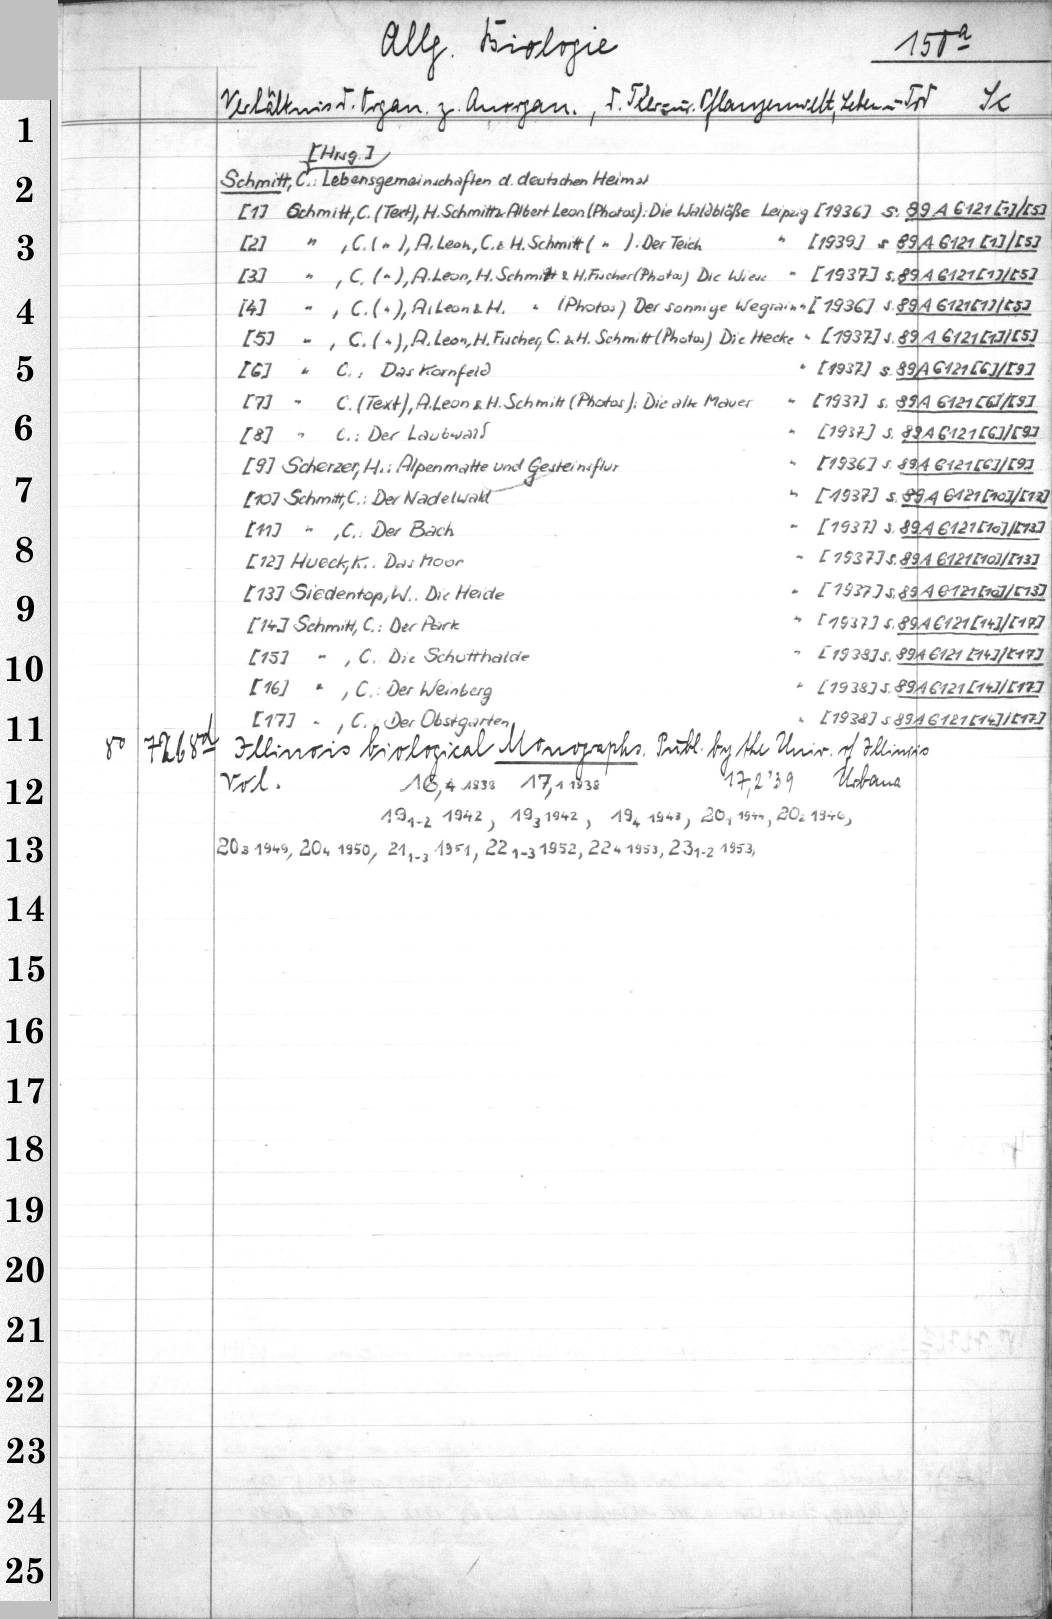 Allg. Biologie 158a
Verhältnis d. Organ. z. Anorgan., d. Tier- u. Pflanzenwelt, Leben u. Tod Sc
[Hrsg.]
Schmitt, C.: Lebensgemeinschaften d. deutschen Heimat
[1] Schmitt, C. (Text), H. Schmitt & Albert Leon (Photos): Die Waldblöße Leipzig [1936] s. 89 A 6121 [1]/[5]
[2] " , C. ( " ), A. Leon, C. & H. Schmitt ( " ): Der Teich " [1939] s 89 A 6121 [1]/[5]
[3] " , C. ( " ), A. Leon, H. Schmitt & H. Fischer (Photos) Die Wiese " [1937] s. 89 A 6121 [1]/[5]
[4] " , C. ( " ), A. Leon & H. " (Photos) Der sonnige Wegrain " [1936] s. 89 A 6121 [1]/[5]
[5] " , C. ( " ), A. Leon, H. Fischer, C. & H. Schmitt (Photos) Die Hecke " [1937] s. 89 A 6121 [1]/[5]
[6] " C.: Das Kornfeld " [1937] s. 89 A 6121 [6]/[9]
[7] " C. (Text), A. Leon & H. Schmitt (Photos): Die alte Mauer " [1937] s. 89 A 6121 [6]/[9]
[8] " C.: Der Laubwald " [1937] s. 89 A 6121 [6]/[9]
[9] Scherzer, H.: Alpenmatte und Gesteinsflur " [1936] s. 89 A 6121 [6]/[9]
[10] Schmitt, C.: Der Nadelwald " [1937] s. 89 A 6121 [10]/[13]
[11] " , C.: Der Bach " [1937] s. 89 A 6121 [10]/[13]
[12] Hueck, K.. Das Moor " [1937] s. 89 A 6121 [10]/[13]
[13] Siedentop, W.. Die Heide " [1937] s. 89 A 6121 [10]/[13]
[14] Schmitt, C.: Der Park " [1937] s. 89 A 6121 [14]/[17]
[15] " , C. Die Schutthalde " [1938] s. 89 A 6121 [14]/[17]
[16] " , C.: Der Weinberg " [1938] s. 89 A 6121 [14]/[17]
[17] " , C., Der Obstgarten " [1938] s 89 A 6121 [14]/[17]
8o 7268d Illinois biological Monographs. Publ. by the Univ. of Illinois
Vol. 16,4 1938 17,1 1938 17,2 '39 Urbana
19 1-2 1942, 19 3 1942, 19 4 1943, 20 1 1944, 20 2 1946,
20 3 1949, 20 4 1950, 21 1-3 1951, 22 1-3 1952, 22 4 1953, 23 1-2 1953,
1
2
3
4
5
6
7
8
9
10
11
12
13
14
15
16
17
18
19
20
21
22
23
24
25